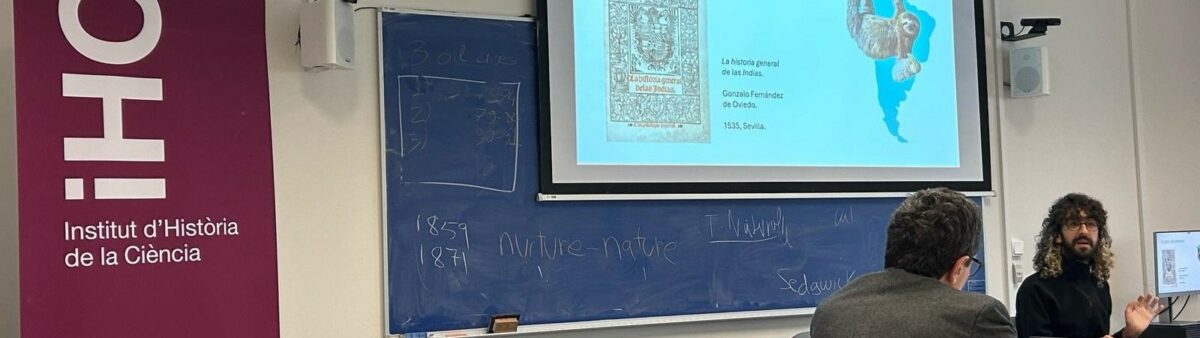 iHC
Institut d'Història
de la Ciència
3 oil crises
1)
2)
3)
1859
1871
nurture-nature
T. Natural
Sedgwick
La historia general
de las Indias.
La historia general
Gonzalo Fernández
de Oviedo,
1535, Sevilla.